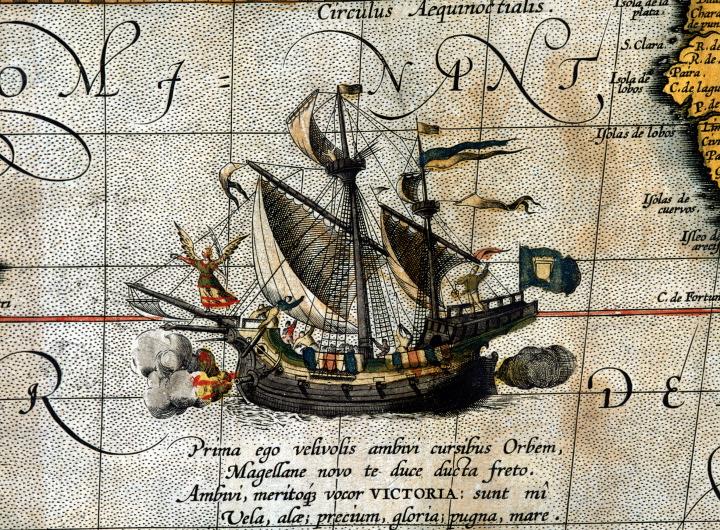 Circulus Aequinoctialis.
Isola de la
plata.
S. Clara
R. de
R. de
Paira
Isola de
lobos
C. de lagu
P. de
Isolas de lobos
O M I = N A N T,
Isolas de
cuervos.
Isleo de
C. de Fortu
R D E
Prima ego velivolis ambivi cursibus Orbem,
Magellane novo te duce ducta freto.
Ambivi, meritoq3 vocor VICTORIA: sunt mî
Vela, alæ; precium, gloria; pugna, mare.